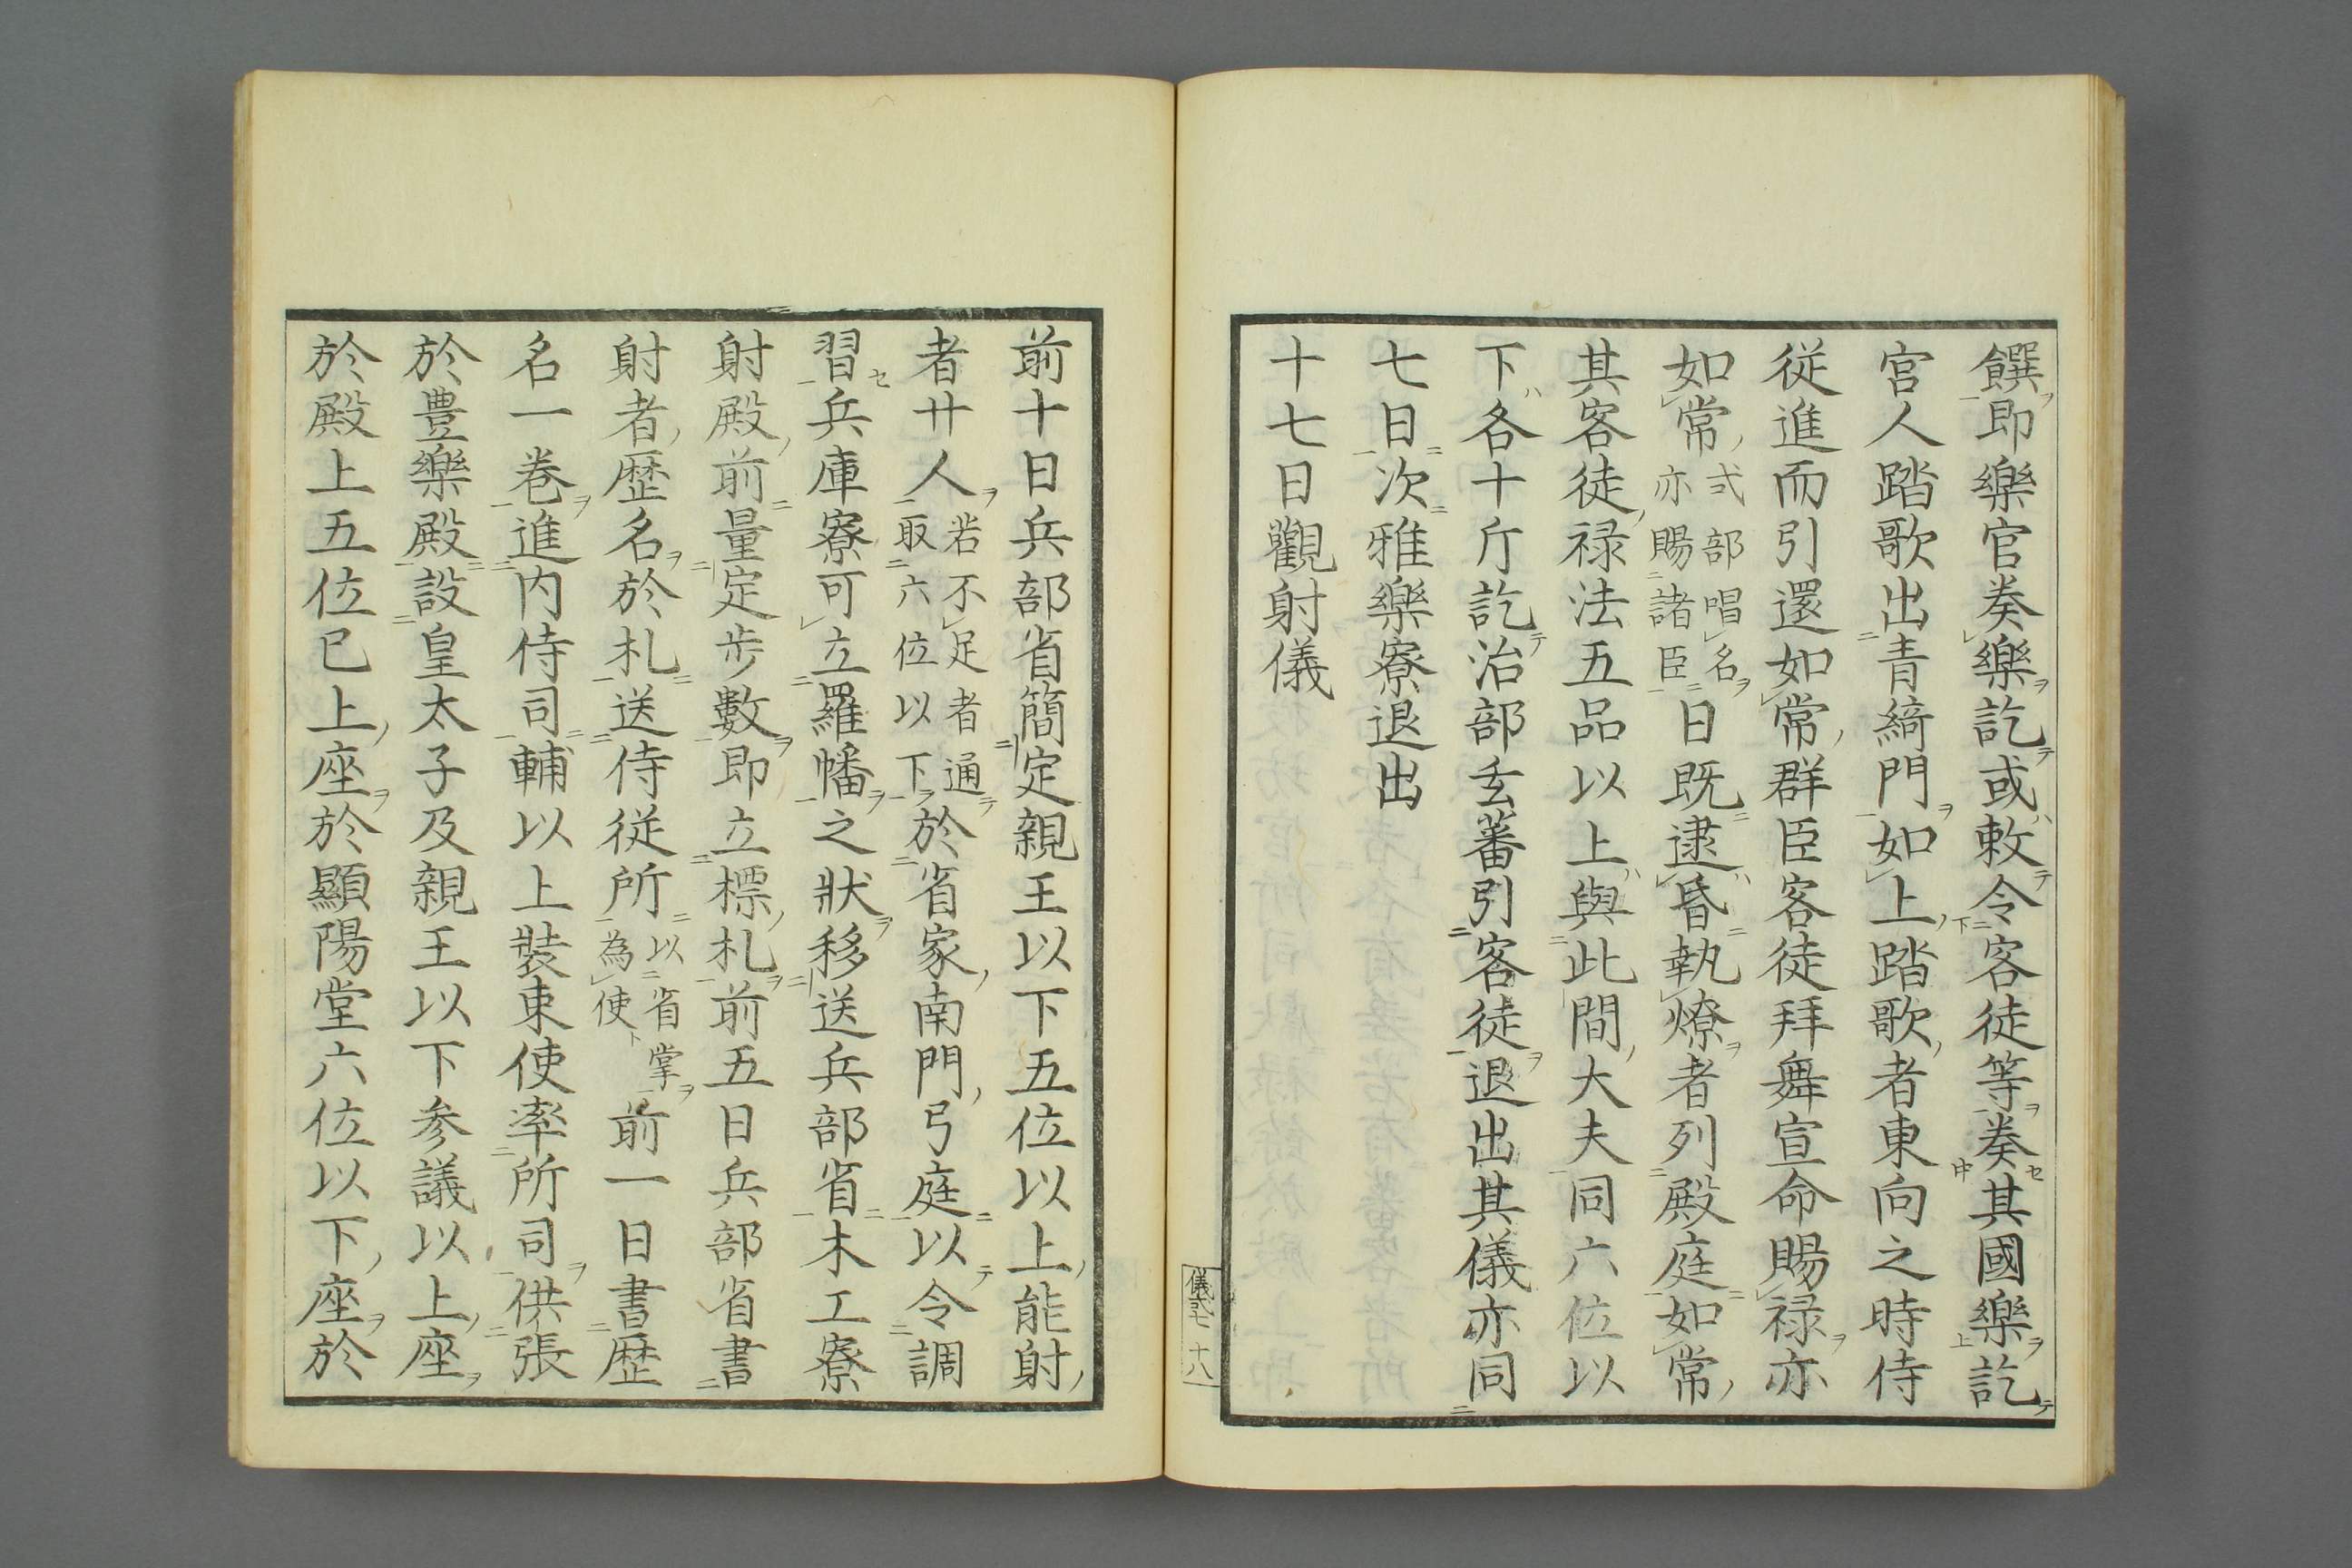 饌即樂官奏樂訖或敕令客徒等奏其國樂訖
宮人踏歌出青綺門如上踏歌者東向之時侍
従進而引還如常群臣客徒拜舞宣命賜禄亦
如常式部唱名亦賜諸臣日既逮昏執燎者列殿庭如常
其客徒禄法五品以上與此間大夫同六位以
下各十斤訖治部玄蕃引客徒退出其儀亦同
七日次雅樂寮退出
十七日觀射儀
儀式七 十八
前十日兵部省簡定親王以下五位以上能射
者廿人若不足者通取六位以下於省家南門弓庭以令調
習兵庫寮可立羅幡之狀移送兵部省木工寮
射殿前量定步數即立標札前五日兵部省書
射者歷名於札送侍従所以省掌為使前一日書歷
名一巻進内侍司輔以上裝束使率所司供張
於豊樂殿設皇太子及親王以下参議以上座
於殿上五位已上座於顯陽堂六位以下座於